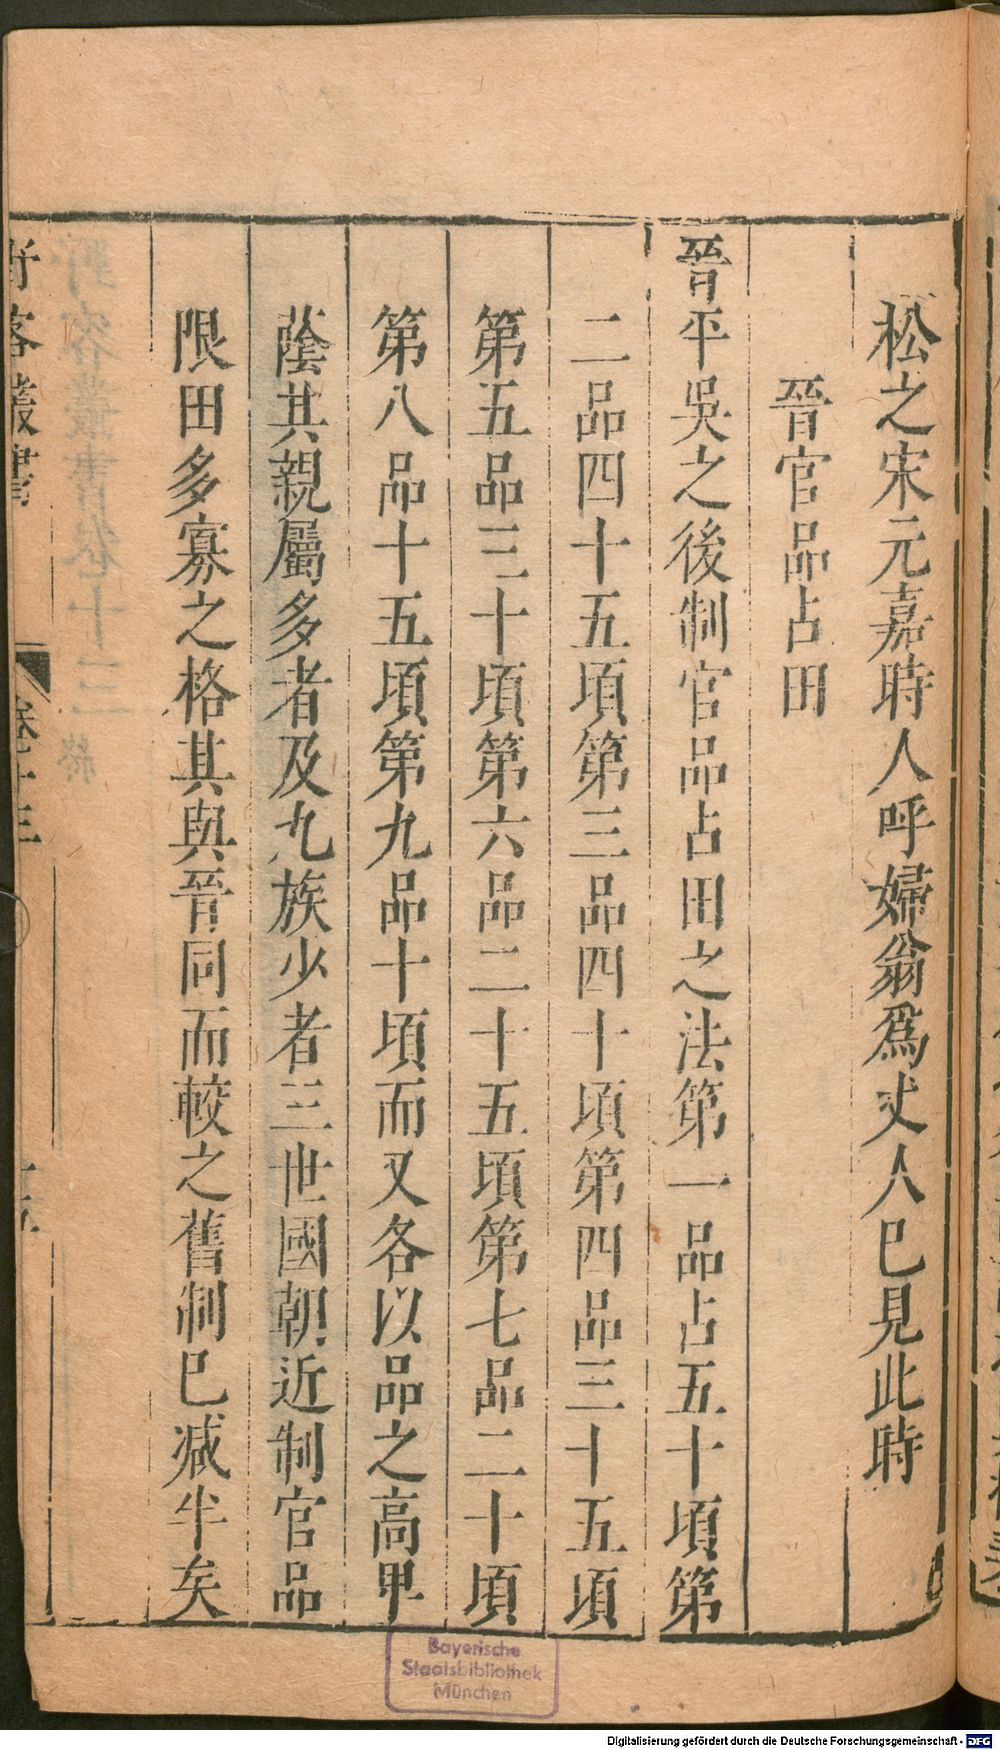 松之宋元嘉時人呼婦翁爲丈人巳見此時
晉官品占田
晉平吳之後制官品占田之法第一品占五十頃第
二品四十五頃第三品四十頃第四品三十五頃
第五品三十頃第六品二十五頃第七品二十頃
第八品十五頃第九品十頃而又各以品之高甲
蔭其親屬多者及九族少者三世國朝近制官品
限田多寡之格其與晉同而較之舊制巳减半矣
野客叢書
卷十三
Bayerische
Staatsbibliothek
München
Digitalisierung gefördert durch die Deutsche Forschungsgemeinschaft - DFG